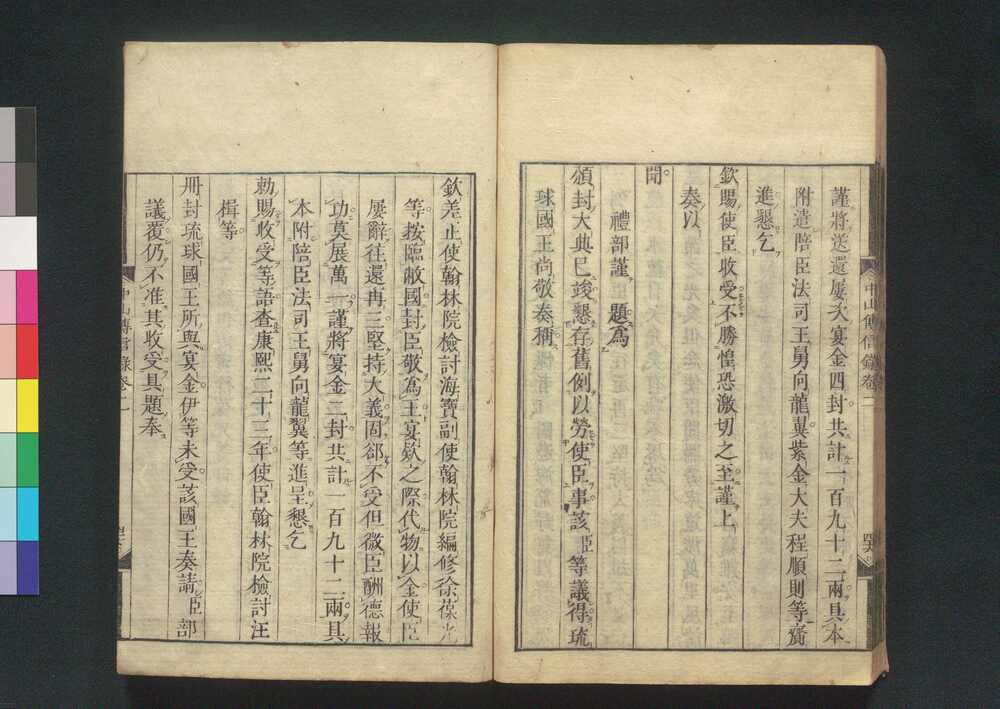 謹將送還屡次宴金四封共計一百九十二兩具本
附遣陪臣法司王舅向龍翼紫金大夫程順則等齎
進懇乞
欽賜使臣收受不勝惶恐激切之至謹上
奏以
聞
禮部謹　題爲
頒封大典已竣懇存舊例以勞使臣事該臣等議得琉
球國王尚敬奏稱
中山傳信錄卷二
欽差正使翰林院檢討海寶副使翰林院編修徐葆光
等按臨敝國封臣敬為王宴欵之際代物以金使臣
屡辭往還再三堅持大義固郤不受但微臣酬德報
功莫展萬一謹將宴金二封共計一百九十二兩具
本附陪臣法司王舅向龍翼等進呈懇乞
勅賜收受等語查康熙二十三年使臣翰林院檢討汪
楫等
冊封琉球國王所與宴金伊等未受該國王奏請臣部
議覆仍不准其收受具題奉
中山傳信錄卷二